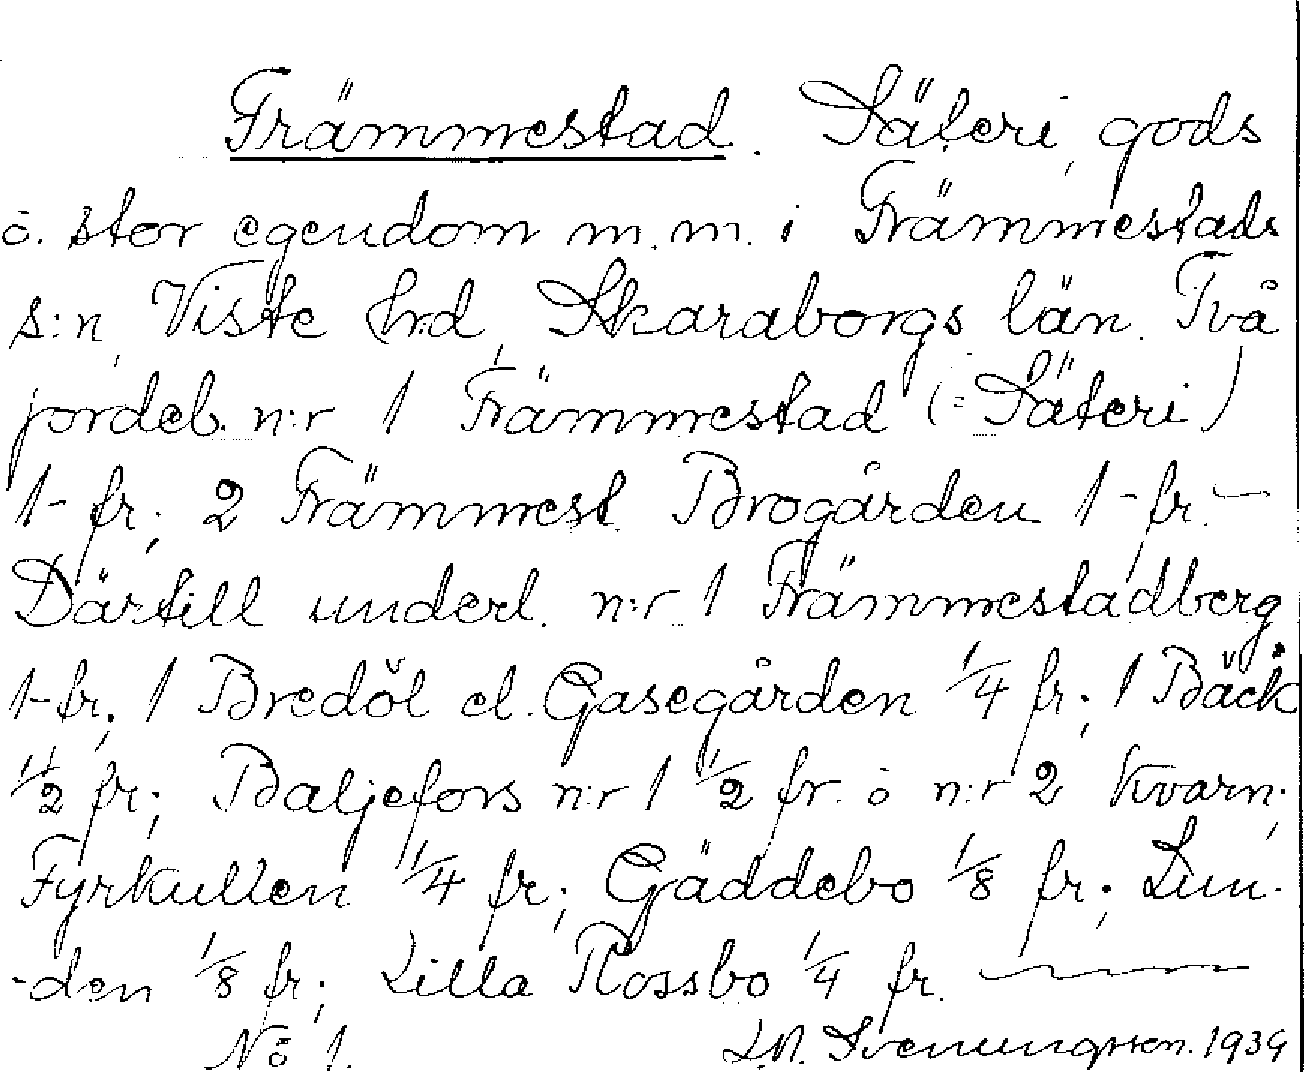 Främmestad. Säteri, gods
o. stor egendom m.m. i Främmestads
s:n, Viste hrd, Skaraborgs län. Två
jordeb. n:r 1 Främmestad (= Säteri)
1- fr; 2 Främmest. Brogården 1- fr. —
Därtill underl. n:r 1 Främmestadberg
1- fr; 1 Bredöl el. Gasegården 1/4 fr; 1 Bäck
1/2 fr; Baljefors n:r 1 1/2 fr. o n:r 2 Kvarn;
Fyrkullen 1/4 fr; Gäddebo 1/8 fr; Lun-
-den 1/8 fr; Lilla Rossbo 1/4 fr. —
No 1. L.N. Svenungsson. 1939